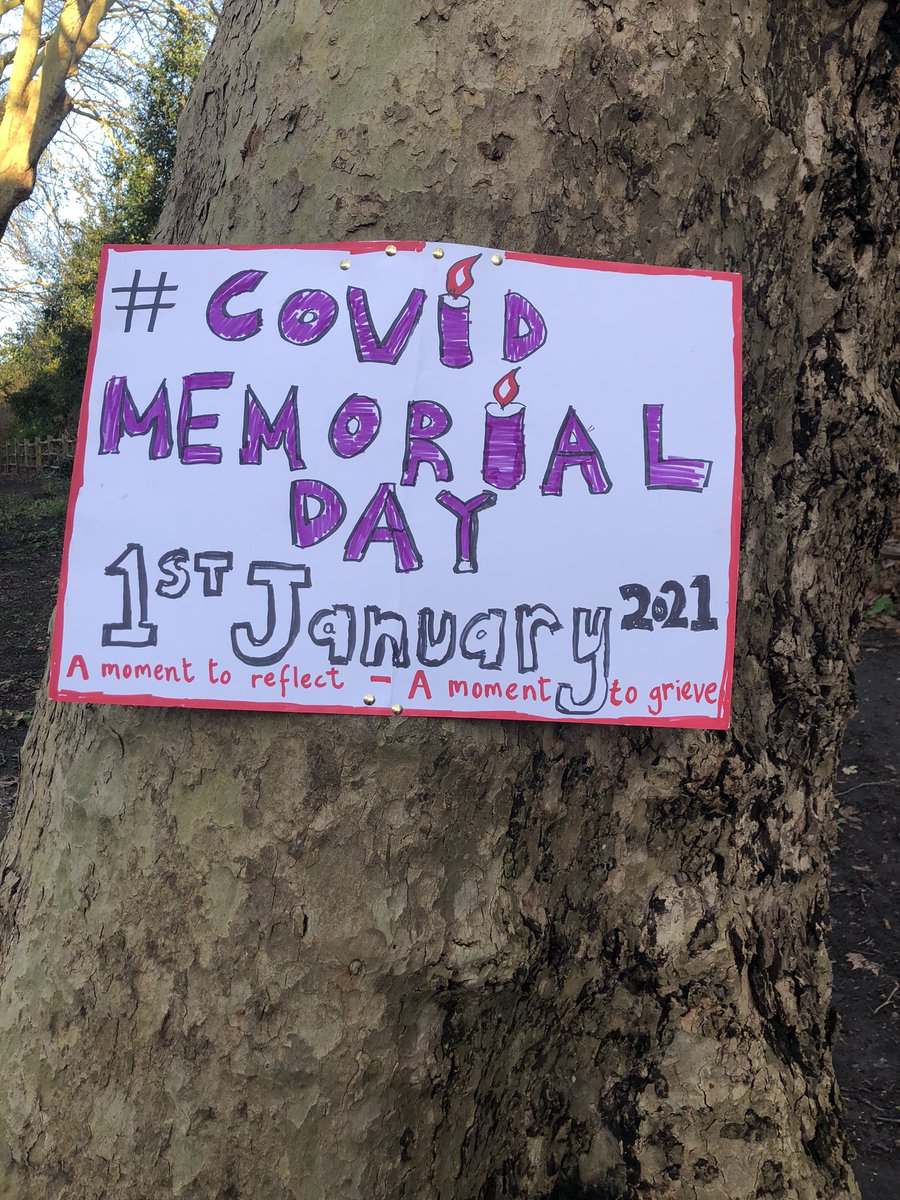 # COViD
MEMORiAL
DAY
1ST January 2021
A moment to reflect - A moment to grieve